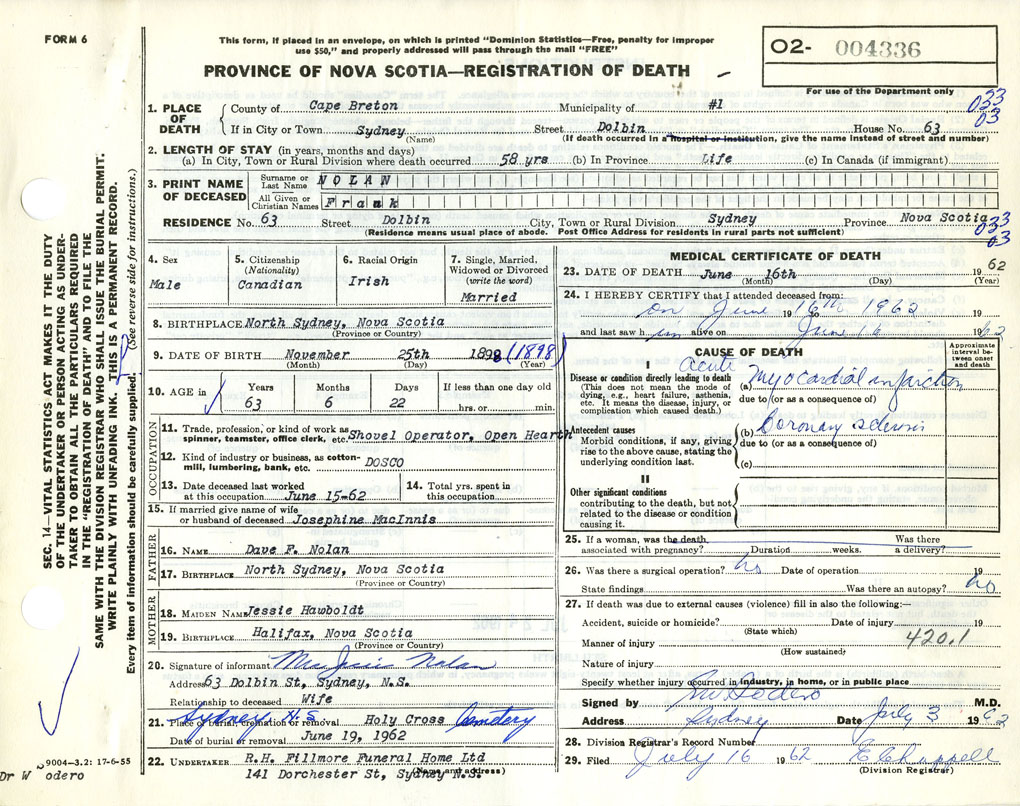 FORM 6
This form, if placed in an envelope, on which is printed "Dominion Statistics—Free, penalty for improper
use $50," and properly addressed will pass through the mail "FREE"
PROVINCE OF NOVA SCOTIA—REGISTRATION OF DEATH
O2- 004336
For use of the Department only
033
03
1. PLACE OF DEATH County of Cape Breton Municipality of #1
If in City or Town Sydney Street Dolbin House No. 63
(Name) (If death occurred in a hospital or institution, give the name instead of street and number)
2. LENGTH OF STAY (in years, months and days)
(a) In City, Town or Rural Division where death occurred 58 yrs (b) In Province Life (c) In Canada (if immigrant)
3. PRINT NAME OF DECEASED Surname or Last Name NOLAN
All Given or Christian Names Frank
RESIDENCE No. 63 Street Dolbin City, Town or Rural Division Sydney Province Nova Scotia
(Residence means usual place of abode. Post Office Address for residents in rural parts not sufficient)
033
03
4. Sex Male
5. Citizenship (Nationality) Canadian
6. Racial Origin Irish
7. Single, Married, Widowed or Divorced (write the word) Married
8. BIRTHPLACE North Sydney, Nova Scotia
(Province or Country)
9. DATE OF BIRTH November 25th 1898 (1898)
(Month) (Day) (Year)
10. AGE in Years 63 Months 6 Days 22 If less than one day old hrs. or min.
OCCUPATION
11. Trade, profession, or kind of work as spinner, teamster, office clerk, etc. Shovel Operator, Open Hearth
12. Kind of industry or business, as cotton-mill, lumbering, bank, etc. DOSCO
13. Date deceased last worked at this occupation June 15-62
14. Total yrs. spent in this occupation
15. If married give name of wife or husband of deceased Josephine MacInnis
FATHER
16. NAME Dave F. Nolan
17. BIRTHPLACE North Sydney, Nova Scotia
(Province or Country)
MOTHER
18. MAIDEN NAME Jessie Hawboldt
19. BIRTHPLACE Halifax, Nova Scotia
(Province or Country)
20. Signature of informant Mrs Nolan
Address 63 Dolbin St, Sydney, N.S.
Relationship to deceased Wife
21. Place of burial, cremation or removal Sydney N.S Holy Cross Cemetery
Date of burial or removal June 19, 1962
22. UNDERTAKER R.H. Fillmore Funeral Home Ltd
141 Dorchester St, Sydney N.S.
(Name and address)
MEDICAL CERTIFICATE OF DEATH
23. DATE OF DEATH June 16th 1962
(Month) (Day) (Year)
24. I HEREBY CERTIFY that I attended deceased from:
on June 16th 1962 19 to 19
and last saw him alive on June 16 1962
CAUSE OF DEATH
Approximate interval between onset and death
I
Disease or condition directly leading to death
(This does not mean the mode of dying, e.g., heart failure, asthenia, etc. It means the disease, injury, or complication which caused death.)
(a) Acute Myocardial infarction
due to (or as a consequence of)
Antecedent causes
Morbid conditions, if any, giving rise to the above cause, stating the underlying condition last.
(b) Coronary sclerosis
due to (or as a consequence of)
(c)
II
Other significant conditions
contributing to the death, but not related to the disease or condition causing it.
25. If a woman, was the death associated with pregnancy? Duration weeks. Was there a delivery?
26. Was there a surgical operation? no Date of operation 19
State findings Was there an autopsy? no
27. If death was due to external causes (violence) fill in also the following:—
Accident, suicide or homicide? Date of injury 19
(State which)
Manner of injury 420.1
(How sustained)
Nature of injury
Specify whether injury occurred in industry, in home, or in public place
Signed by M.D.
Address Sydney Date July 3 1962
28. Division Registrar's Record Number
29. Filed July 16 1962 E Chappell
(Division Registrar)
SEC. 14—VITAL STATISTICS ACT MAKES IT THE DUTY
OF THE UNDERTAKER OR PERSON ACTING AS UNDER-
TAKER TO OBTAIN ALL THE PARTICULARS REQUIRED
IN THE "REGISTRATION OF DEATH" AND TO FILE THE
SAME WITH THE DIVISION REGISTRAR WHO SHALL ISSUE THE BURIAL PERMIT.
WRITE PLAINLY WITH UNFADING INK. THIS IS A PERMANENT RECORD.
Every item of information should be carefully supplied. (See reverse side for instructions.)
9004—3.2: 17-6-55
Dr W odero